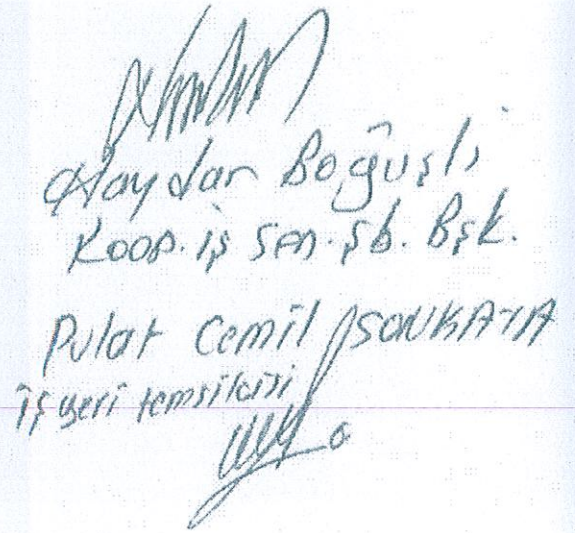 Haydar Boğuşlu
Koop. iş Sen. şb. Bşk.
Pulat Cemil SONKAYA
İşyeri temsilcisi